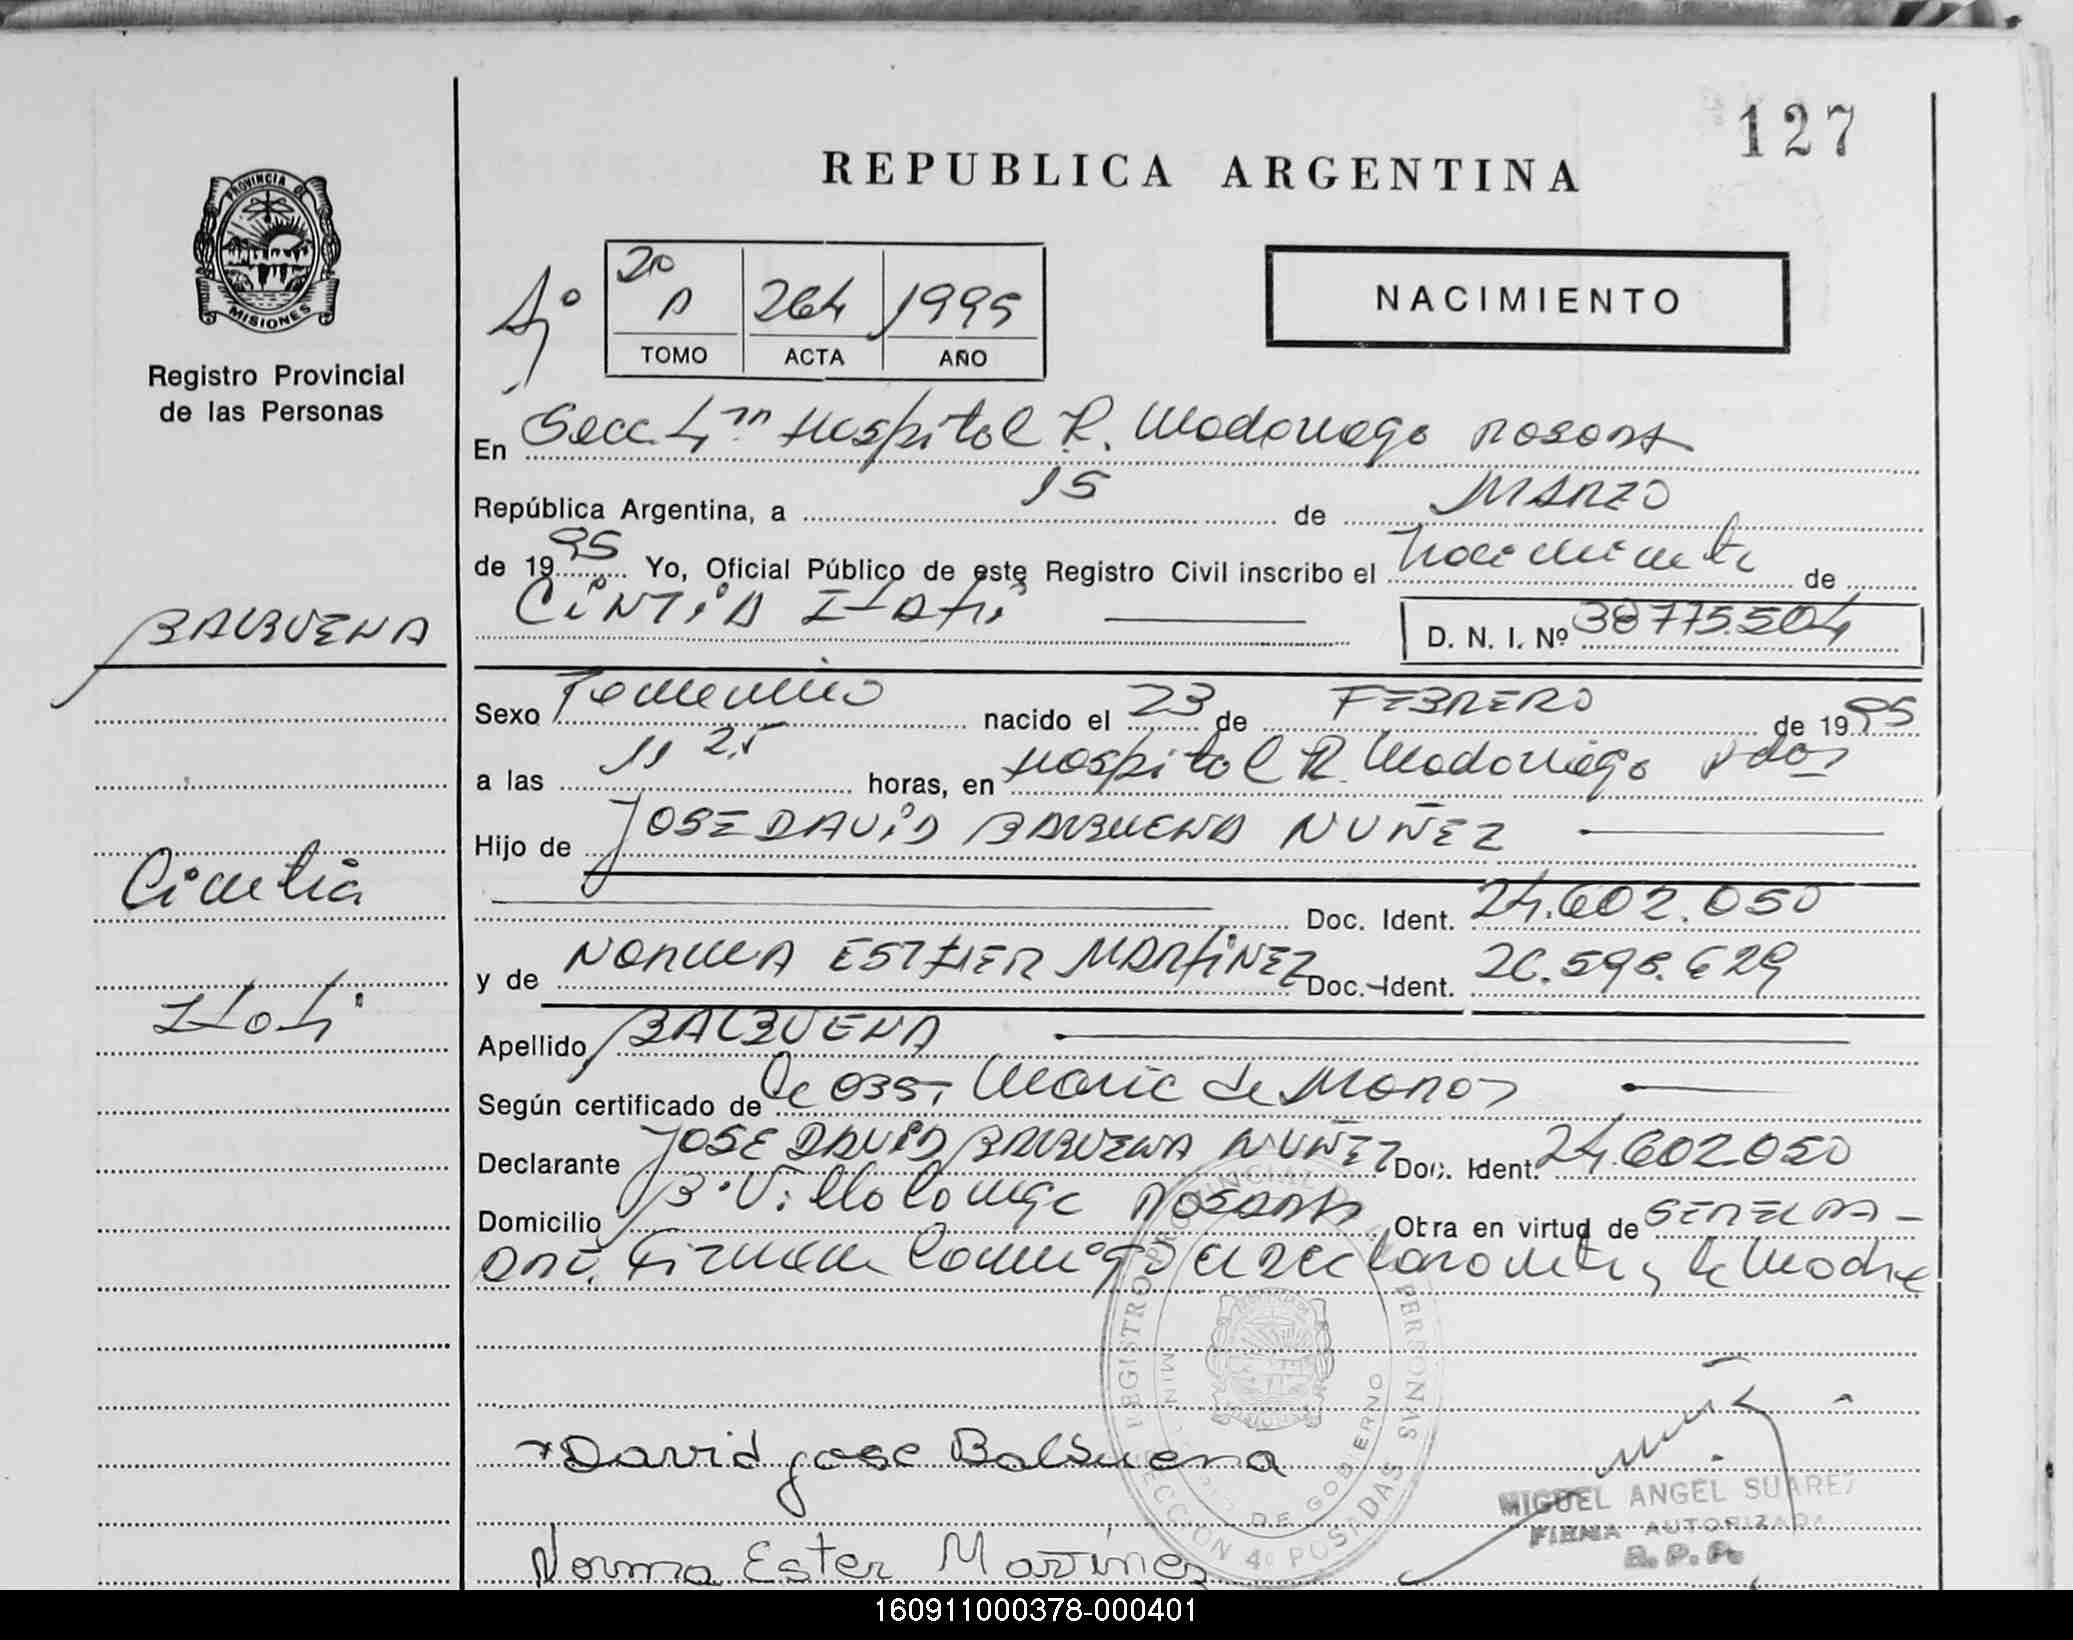 127
REPUBLICA ARGENTINA
PROVINCIA DE
MISIONES
Registro Provincial
de las Personas
4º
2º A 264 1995
TOMO ACTA AÑO
NACIMIENTO
En Secc. 4ta Hospital R. Madariaga Posadas
República Argentina, a 15 de MARZO
de 1995 Yo, Oficial Público de este Registro Civil inscribo el nacimiento de
CINTIA ITATI
D. N. I. Nº 38.775.504
BALBUENA
Sexo Femenino nacido el 23 de FEBRERO de 1995
a las 11 25 horas, en Hospital R. Madariaga Pdas
Hijo de JOSE DAVID BALBUENA NUÑEZ
Cintia
Doc. Ident. 24.602.050
y de NORMA ESTHER MARTINEZ Doc. Ident. 26.598.629
Itati
Apellido BALBUENA
Según certificado de de Maria de
Declarante JOSE DAVID BALBUENA NUÑEZ Doc. Ident. 24.602050
Domicilio Bº Villalonga POSADAS Otra en virtud de
Firman Conmigo el declarante y la Madre
REGISTRO PROVINCIAL DE PERSONAS
MINISTERIO DE GOBIERNO
SECCION 4º POSADAS
David jose Balbuena
MIGUEL ANGEL SUAREZ
FIRMA AUTORIZADA
R. P. P.
Norma Ester Martinez
160911000378-000401